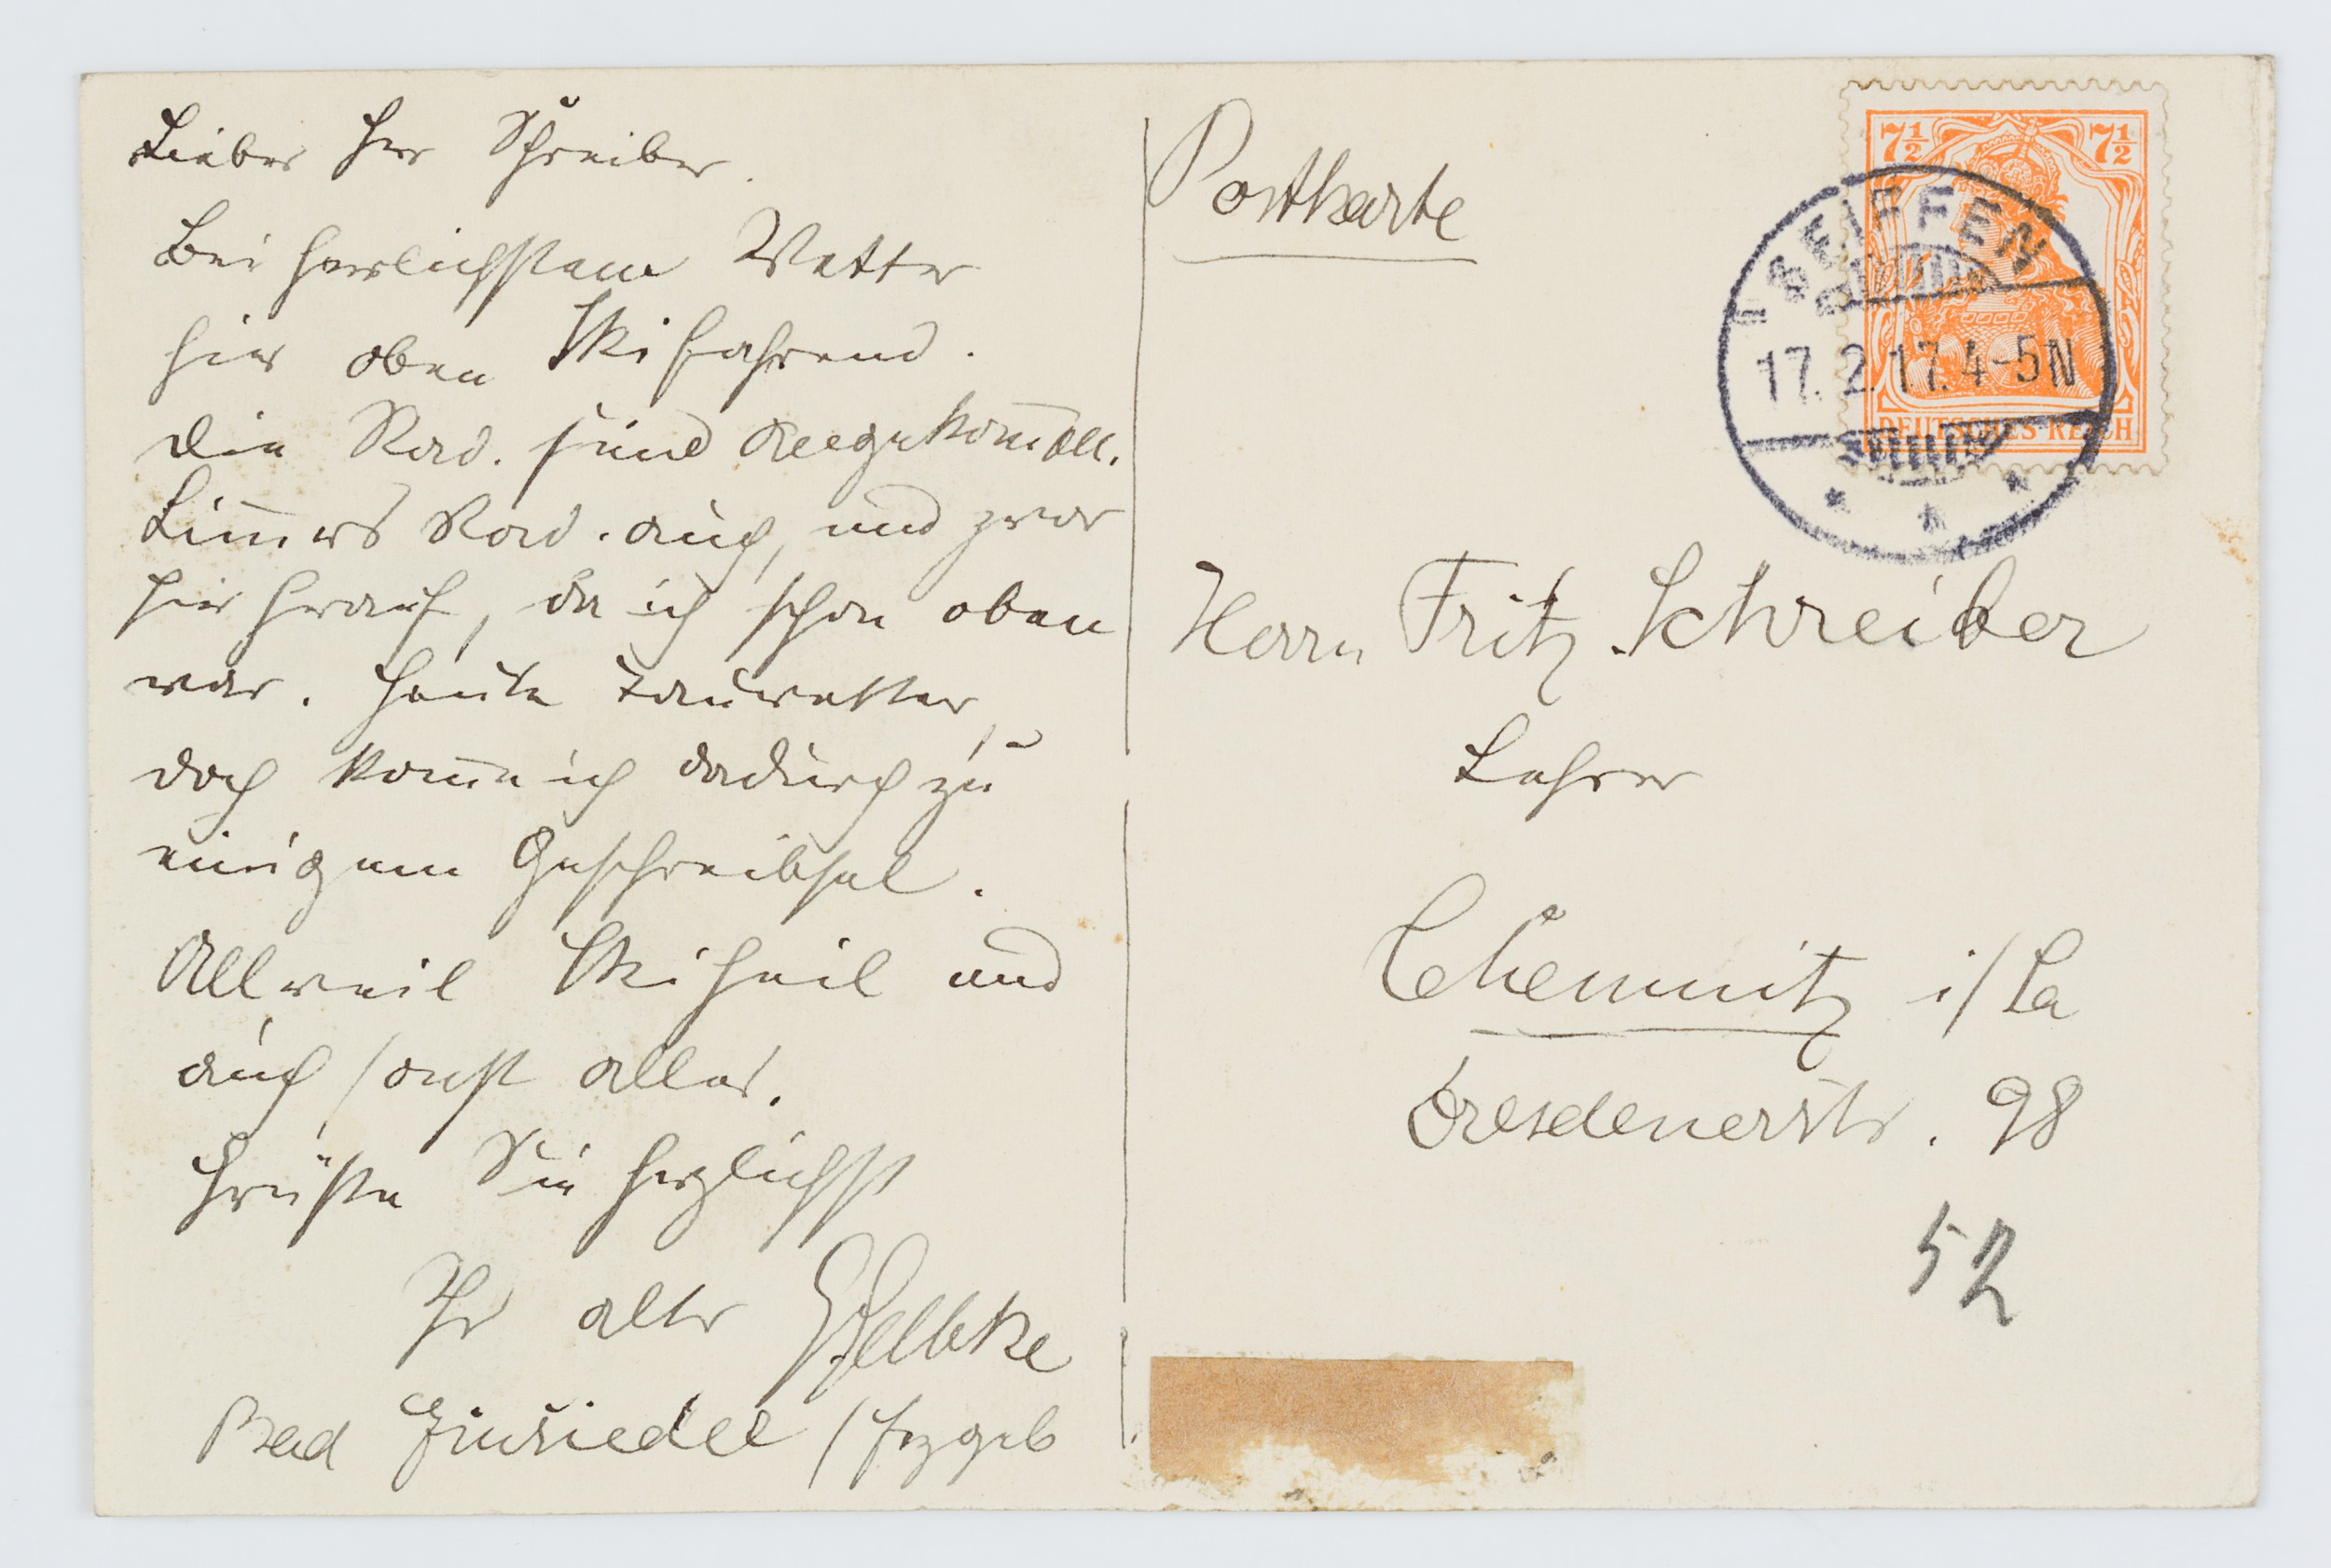 Lieber Herr Schreiber.
Bei herrlichstem Wetter
hier oben Skifahrend.
Die Rad. sind angekommen.
Limmers Rad. auch, und zwar
hier herauf, da ich schon oben
war. Heute Tauwetter,
doch komme ich dadurch zu
einigem Geschreibsel.
Allweil Skiheil und
auch sonst alles.
Grüße Sie herzlichst
Ihr alter
Bad Einsiedel / Erzgeb
Postkarte
7½ 7½
DEUTSCHES REICH
SEIFFEN
17. 2. 17. 4-5N
Herrn Fritz Schreiber
Lehrer
Chemnitz i/Sa
Dresdenerstr. 98
52